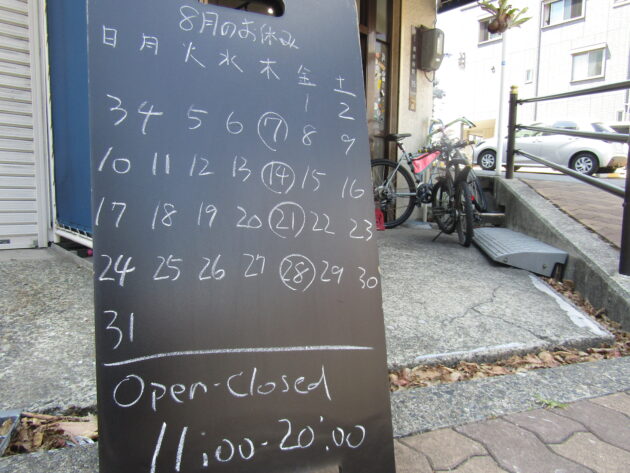 8月のお休み
日 月 火 水 木 金 土
1 2
3 4 5 6 7 8 9
10 11 12 13 14 15 16
17 18 19 20 21 22 23
24 25 26 27 28 29 30
31
Open-Closed
11:00-20:00